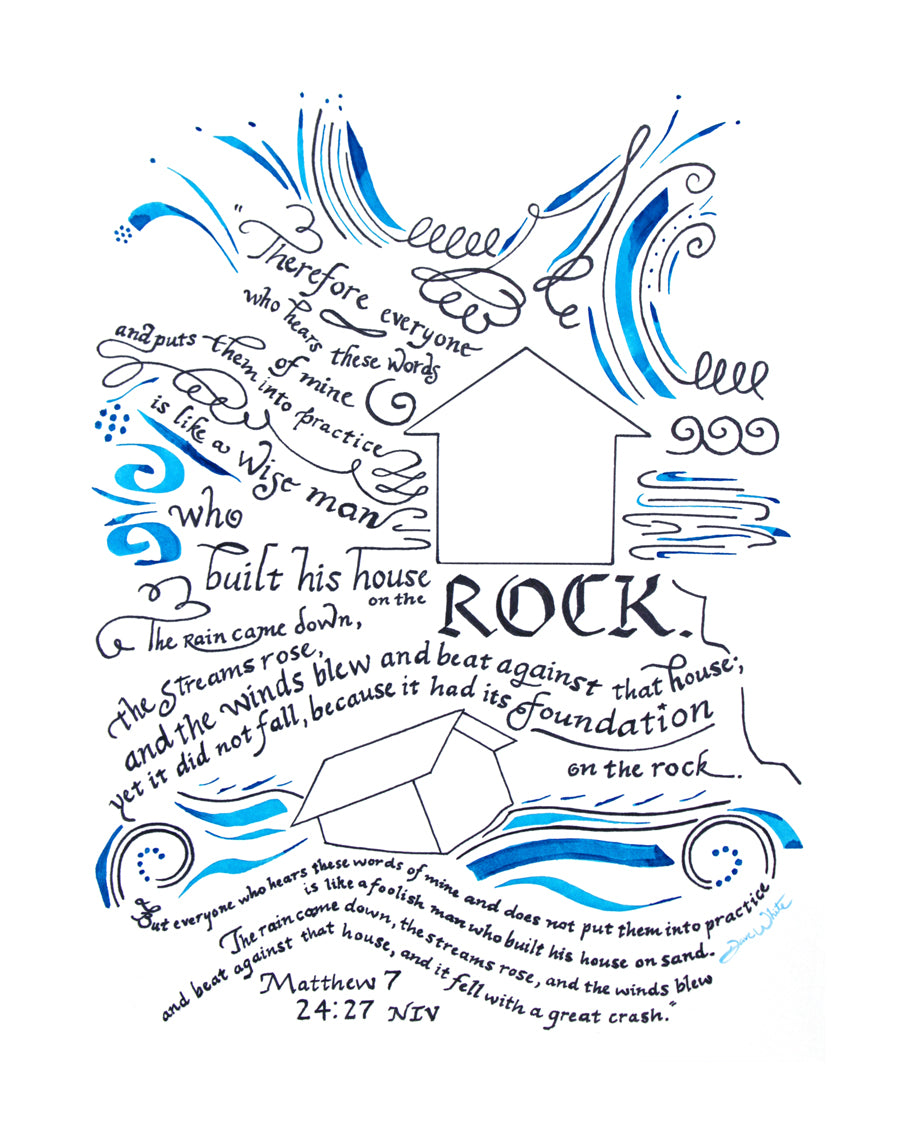 "Therefore everyone
who hears these words
of mine
and puts them into practice
is like a wise man
who
built his house
on the
ROCK.
The Rain came down,
the streams rose,
and the winds blew and beat against that house;
yet it did not fall, because it had its foundation
on the rock.
But everyone who hears these words of mine and does not put them into practice
is like a foolish man who built his house on sand.
The rain came down, the streams rose, and the winds blew
and beat against that house, and it fell with a great crash."
Matthew 7
24:27 NIV
Dave White